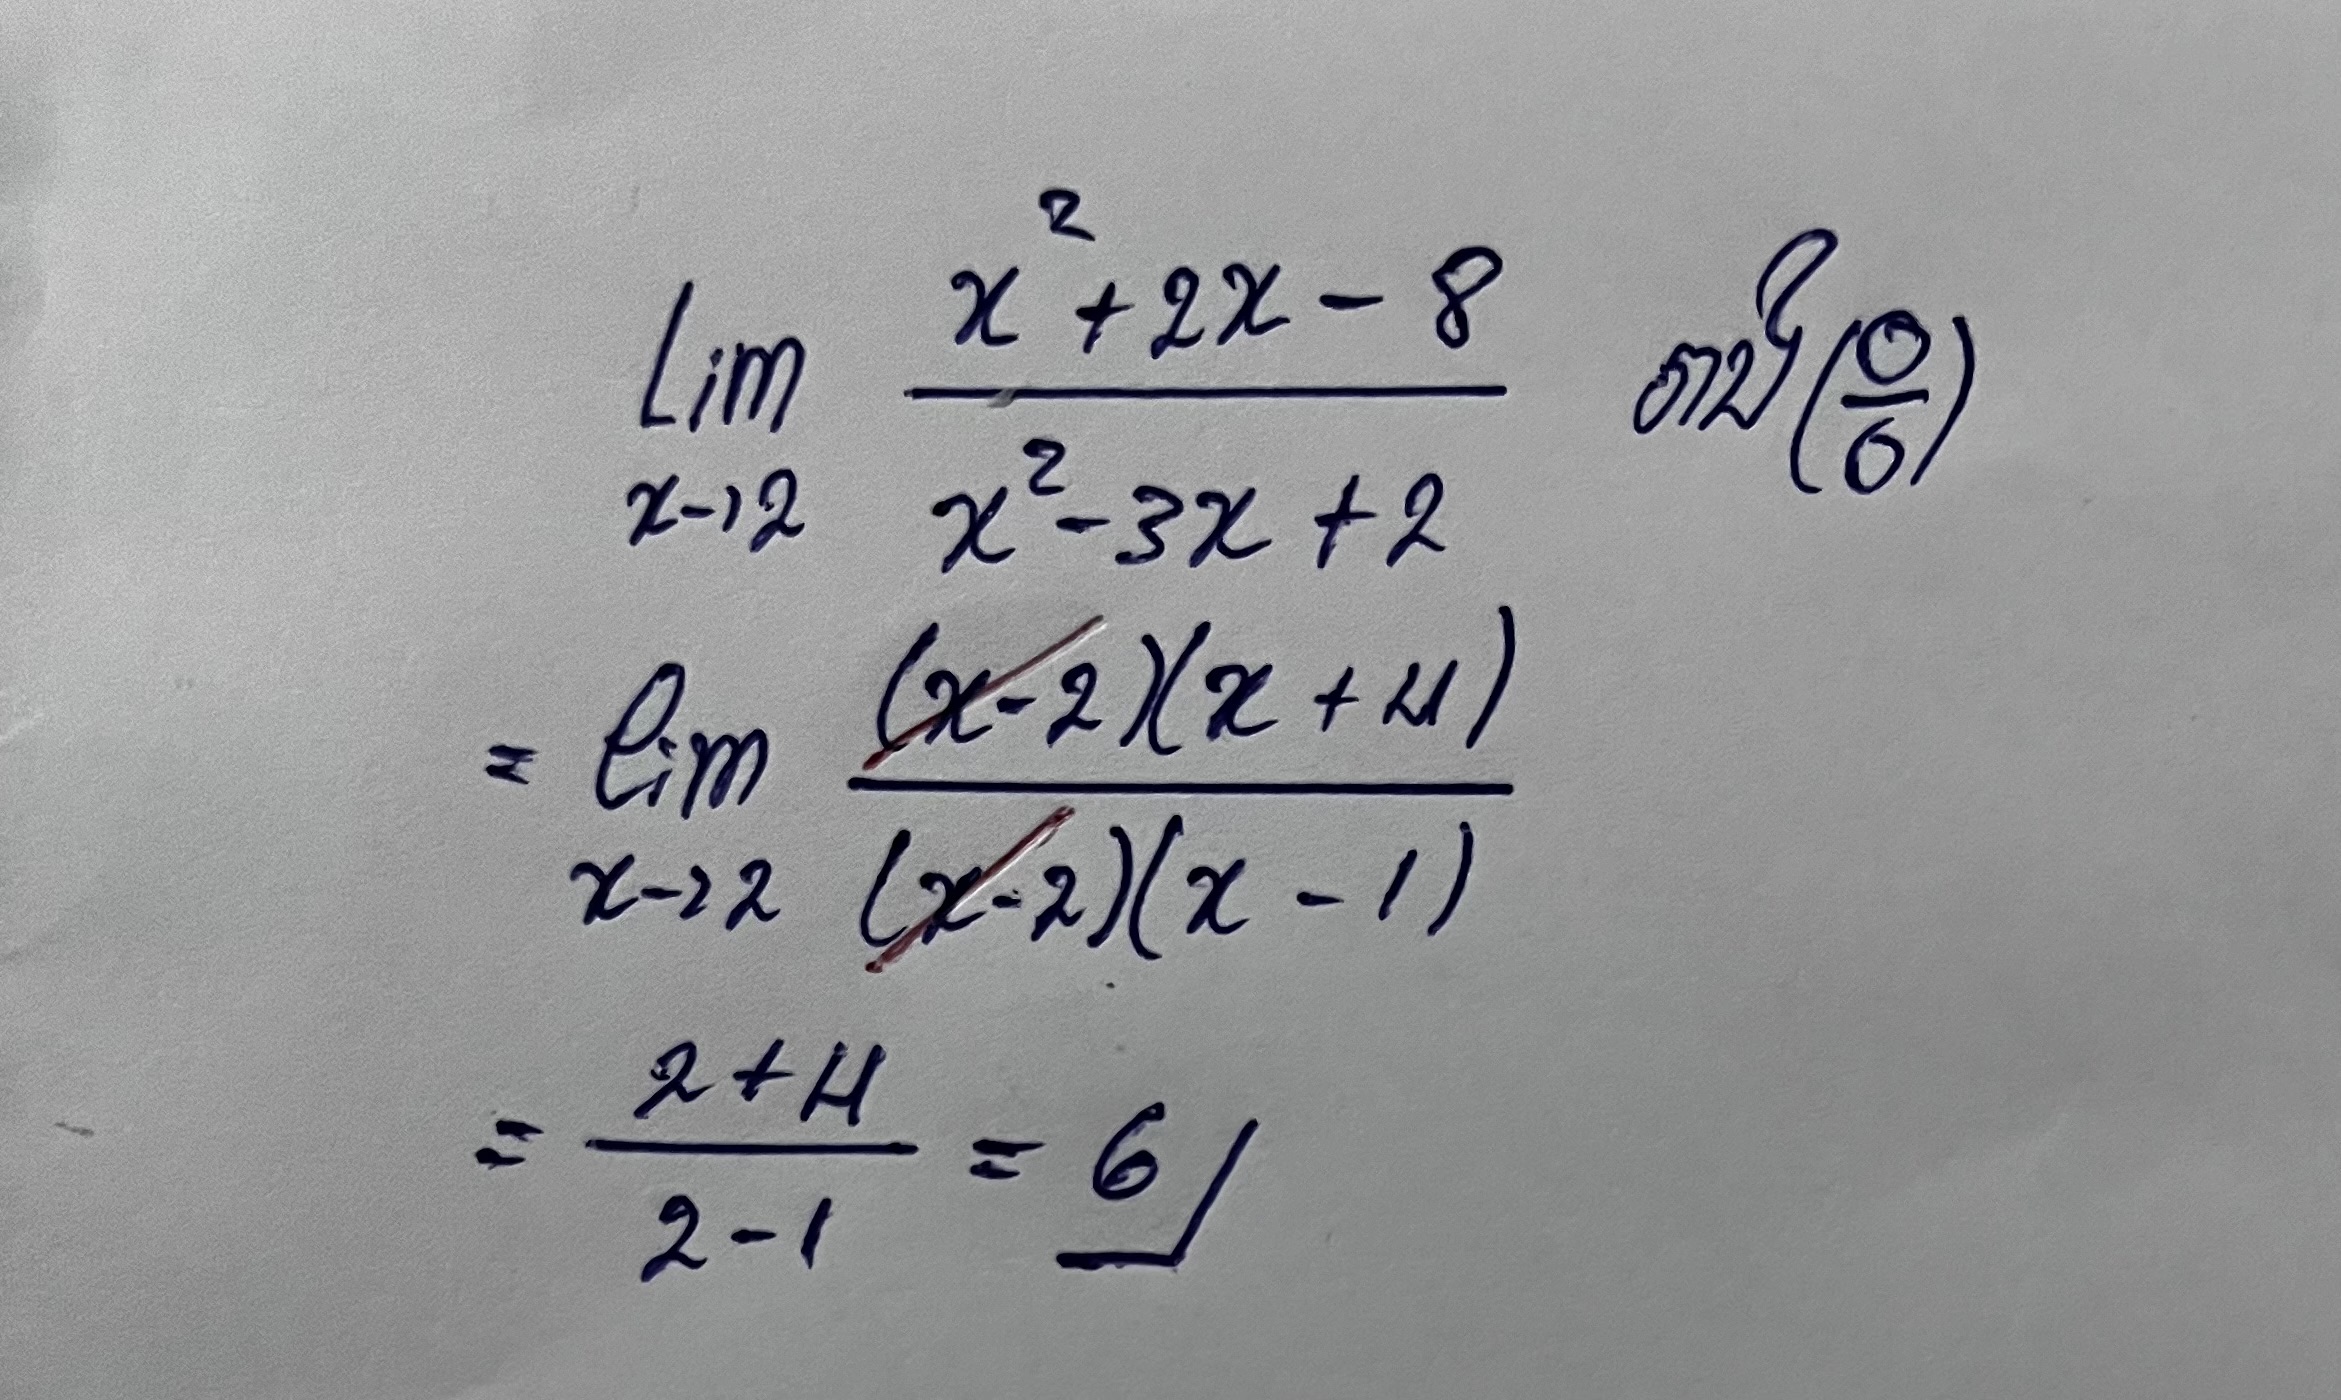 lim x→2 (x² + 2x - 8)/(x² - 3x + 2) (0/0)
= lim x→2 (x-2)(x+4)/(x-2)(x-1)
= (2+4)/(2-1) = 6